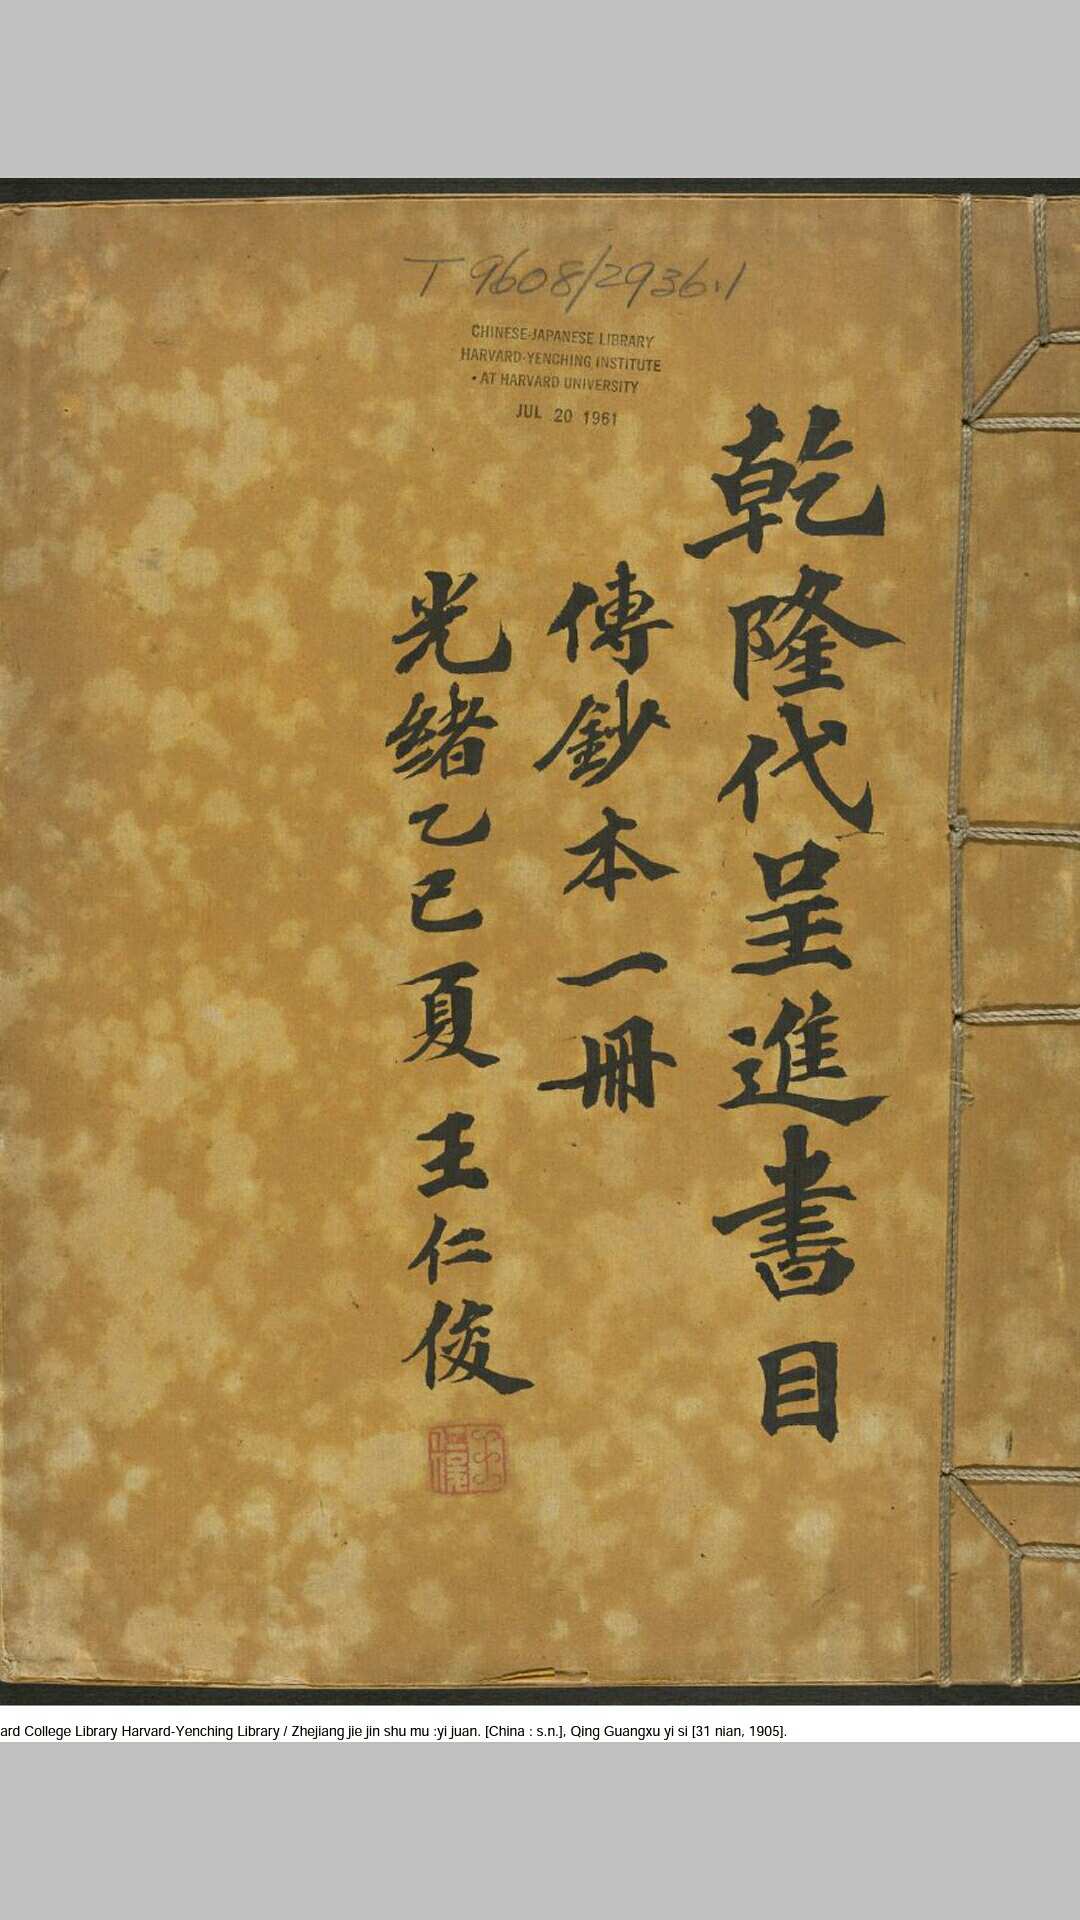 T 9608/2936.1
CHINESE-JAPANESE LIBRARY
HARVARD-YENCHING INSTITUTE
• AT HARVARD UNIVERSITY
JUL 20 1961
乾隆代呈進書目
傳鈔本一冊
光緒乙巳夏 王仁俊
ard College Library Harvard-Yenching Library / Zhejiang jie jin shu mu :yi juan. [China : s.n.], Qing Guangxu yi si [31 nian, 1905].